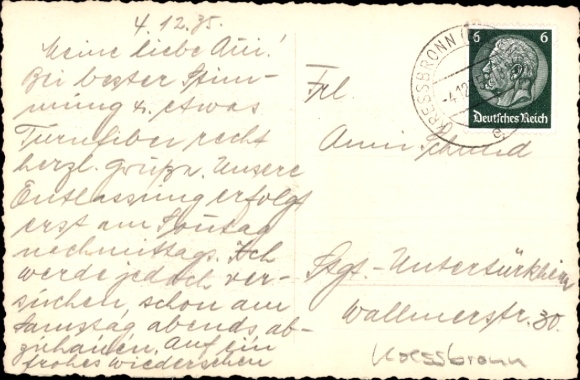 4.12.35.
Meine liebe Anni!
Bei bester Stim-
mung u. etwas
Turnfiber recht
herzl. Grüße. Unsere
Entlassung erfolgt
erst am Sonntag
nachmittags. Ich
werde jedoch ver-
suchen, schon am
Samstag abends ab-
zuhauen. Auf ein
frohes wiedersehen
Frl.
Anni Schmid
Stgt.-Untertürkheim
Wallmerstr. 30.
Kressbronn
6 6
Deutsches Reich
KRESSBRONN
-4.12.